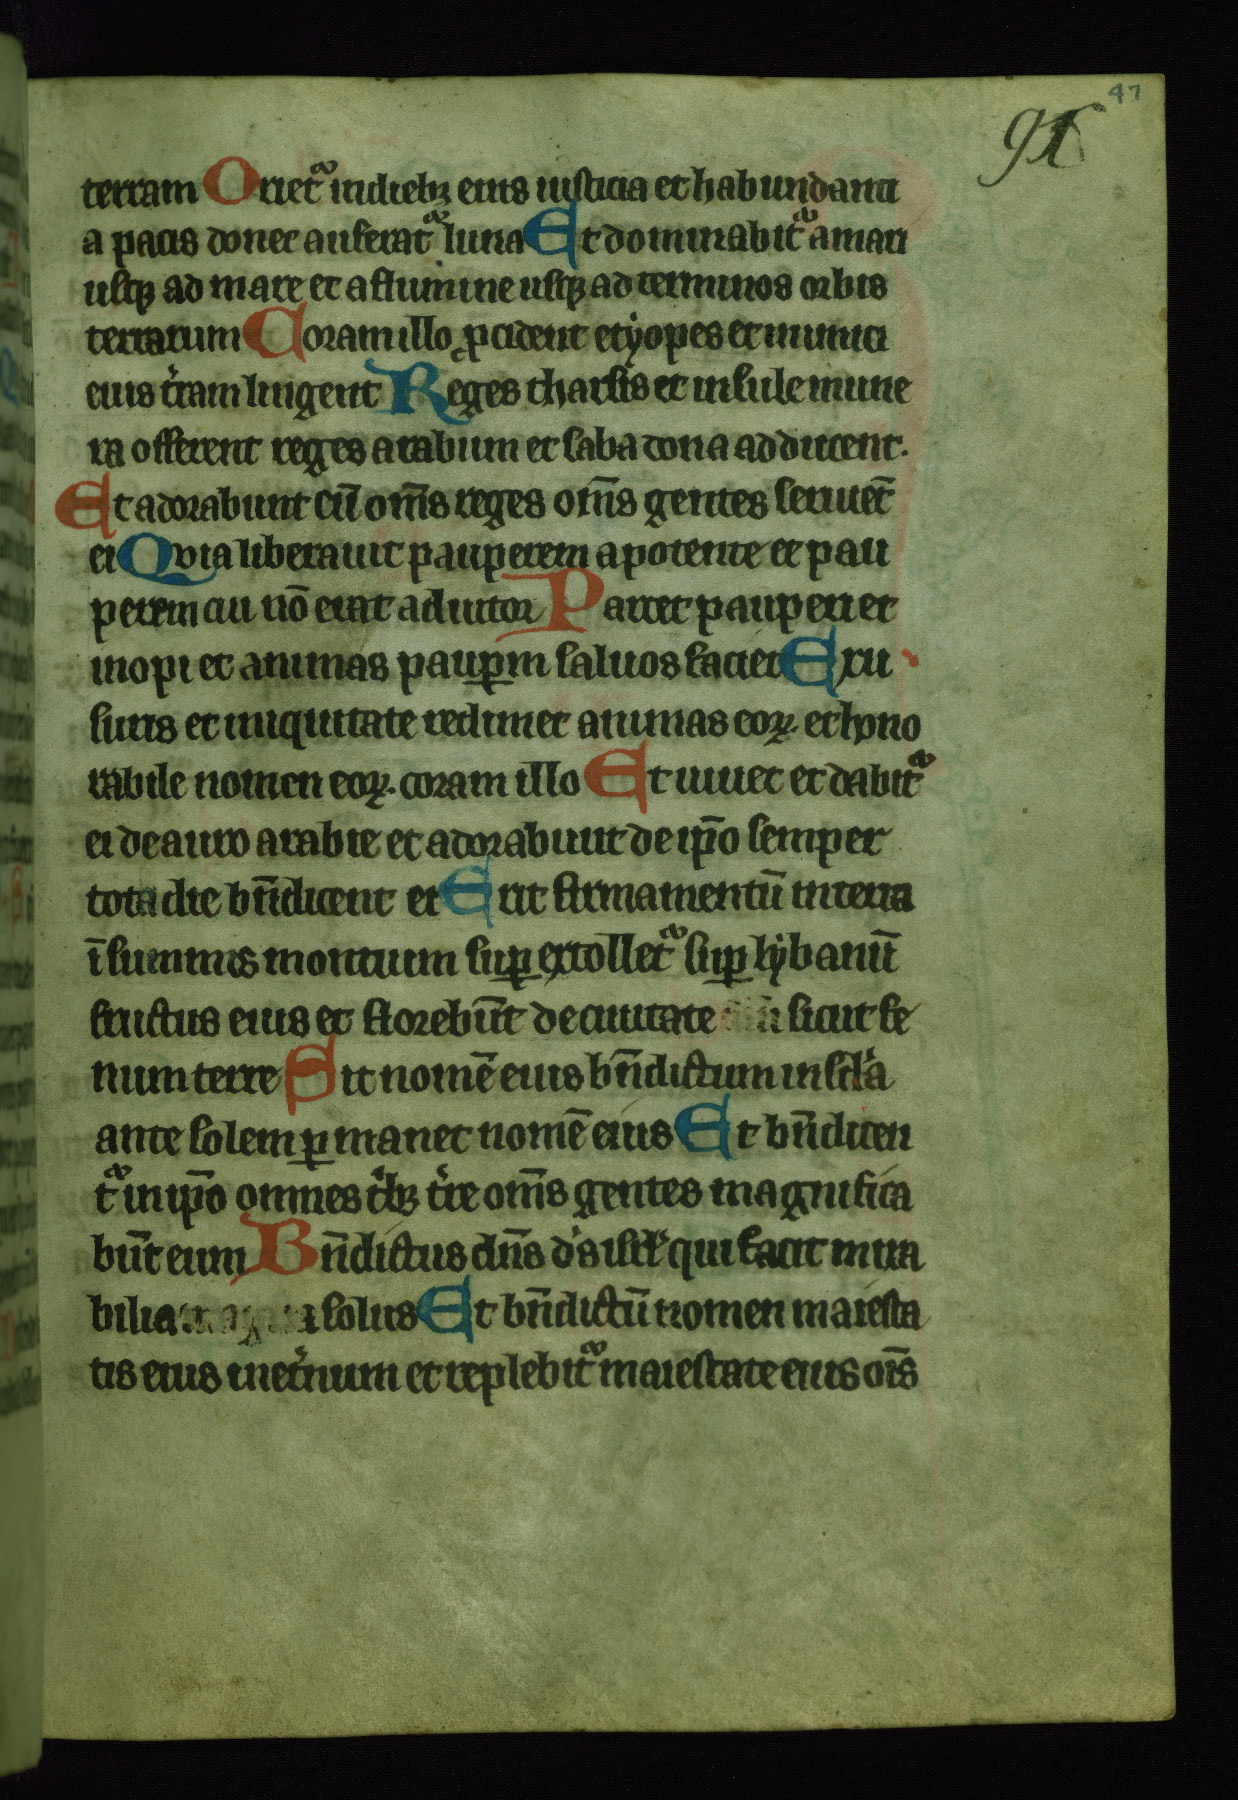 47
91
terram Oriet᷑ in dieb; eius iusticia et habundanti
a pacis donec auferat᷑ luna Et dominabit᷑ a mari
usq; ad mare et a flumine usq; ad terminos orbis
terrarum Coram illo ꝓcident etyopes et inimici
eius t̾ram lingent Reges tharsis et insule mune
ra offerent reges arabum et saba dona adducent.
Et adorabunt eū om̄s reges om̄s gentes seruiēt
ei Quia liberauit pauperem a potente et pau
perem cui nō erat adiutor Parcet pauperi et
inopi et animas paupꝑm saluos faciet Ex u
suris et iniquitate redimet animas eoꝝ. et hono
rabile nomen eoꝝ. coram illo Et uiuet et dabit᷑
ei de auro arabie et adorabunt de ip̄o semper
tota die bn̄dicent ei Erit firmamentū in terra
ī summis montium suꝑ extollet᷑ suꝑ lybanū
fructus eius et florebūt de ciuitate sicut fe
num terre Sit nomē eius bn̄dictum in scl̾a
ante solem ꝑmanet nomē eius Et bn̄dicen
t᷑ in ip̄o omnes t̾b; t̾re om̄s gentes magnifica
būt eum Bn̄dictus dn̄s d̾s isrl̾ qui facit mira
bilia solus Et bn̄dictū nomen maiesta
tis eius in et̾num et replebit᷑ maiestate eius ois̄